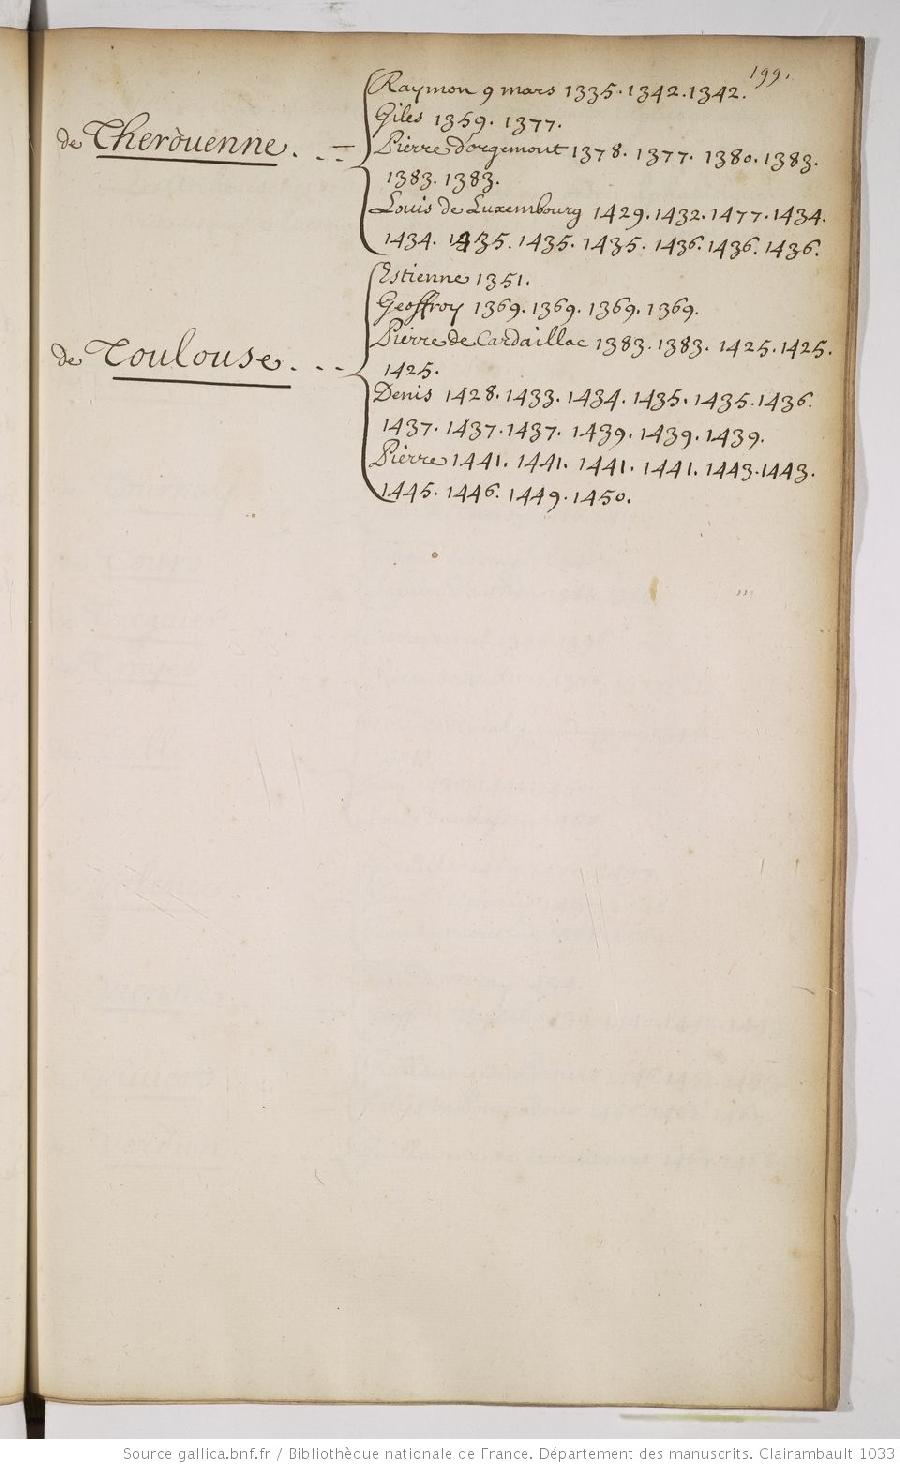 199.
de Therouenne. . . —
Raymon 9 mars 1335. 1342. 1342.
Giles 1359. 1377.
Pierre d'orgemont 1378. 1377. 1380. 1383.
1383. 1383.
Louis de Luxembourg 1429. 1432. 1477. 1434.
1434. 1435. 1435. 1435. 1436. 1436. 1436.
de Toulouse. . . .
Estienne 1351.
Geoffroy 1369. 1369. 1369. 1369.
Pierre de Cardaillac 1383. 1383. 1425. 1425.
1425.
Denis 1428. 1433. 1434. 1435. 1435. 1436.
1437. 1437. 1437. 1439. 1439. 1439.
Pierre 1441. 1441. 1441. 1441. 1443. 1443.
1445. 1446. 1449. 1450.
Source gallica.bnf.fr / Bibliothèque nationale de France. Département des manuscrits. Clairambault 1033